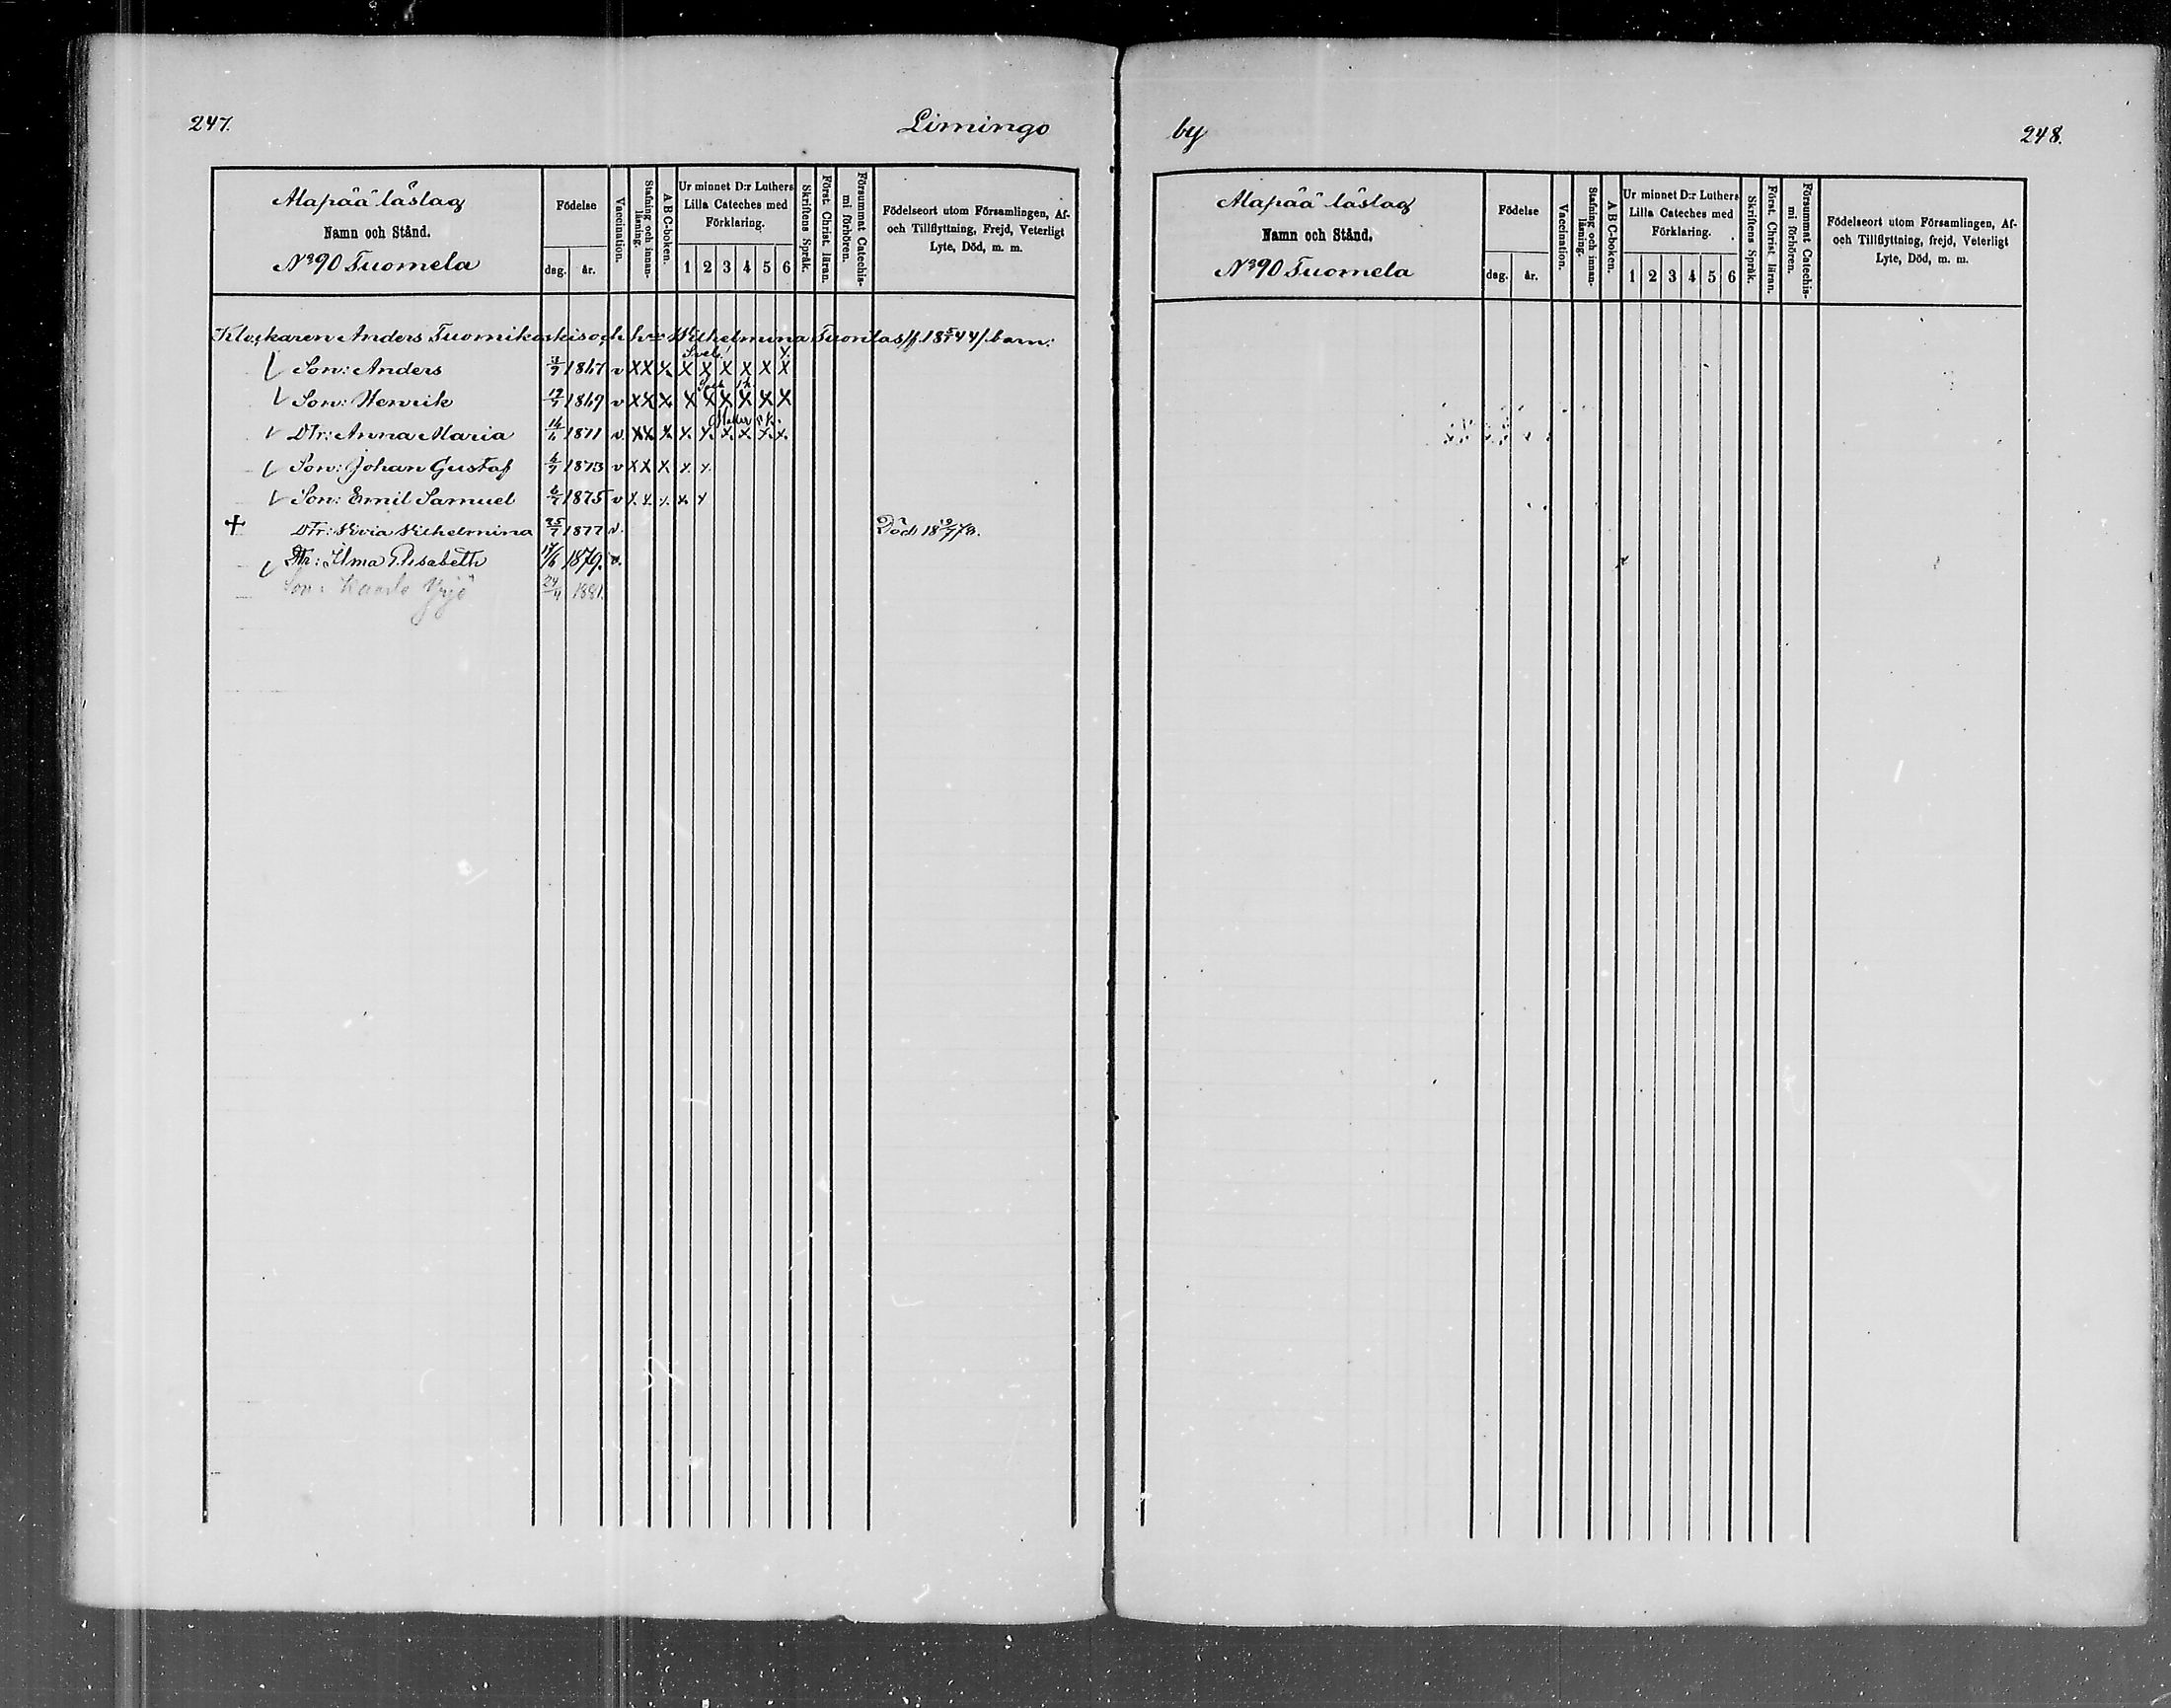 247. Limingo
Alapää läslag
Namn och Stånd.
No 90 Tuomela
Födelse
dag. år.
Vaccination.
Stafning och innanläsning.
A B C-boken.
Ur minnet D:r Luthers
Lilla Cateches med
Förklaring.
1 2 3 4 5 6
Skriftens Språk.
Först. Christ. läran.
Försummat Catechismi förhören.
Födelseort utom Församlingen, Af-
och Tillflyttning, Frejd, Veterligt
Lyte, Död, m. m.
Klockaren Anders Tuomikoskis och h:s Wilhelmina /f. 18 44/. barn:
Son: Anders 3/9 1867 v X X X X X X X X X
Son: Henrik 1869 v X X X X X X X X X
Dtr: Anna Maria 1871 v. X X. X. X. X. X. X X. X.
Son: Johan Gustaf 1873 v X X X X. X.
Son: Emil Samuel 1875 v X. X. X. X. X
+ Dtr: Wilhelmina 25/7 1877 v. Död
Dtr: Ilma Elisabeth 1879. v.
Son: Kaarlo Yrjö 24/4 1881.
by 248.
Alapää läslag
Namn och Stånd.
No 90 Tuomela
Födelse
dag. år.
Vaccination.
Stafning och innanläsning.
A B C-boken.
Ur minnet D:r Luthers
Lilla Cateches med
Förklaring.
1 2 3 4 5 6
Skriftens Språk.
Först. Christ. läran.
Försummat Catechismi förhören.
Födelseort utom Församlingen, Af-
och Tillflyttning, frejd, Veterligt
Lyte, Död, m. m.